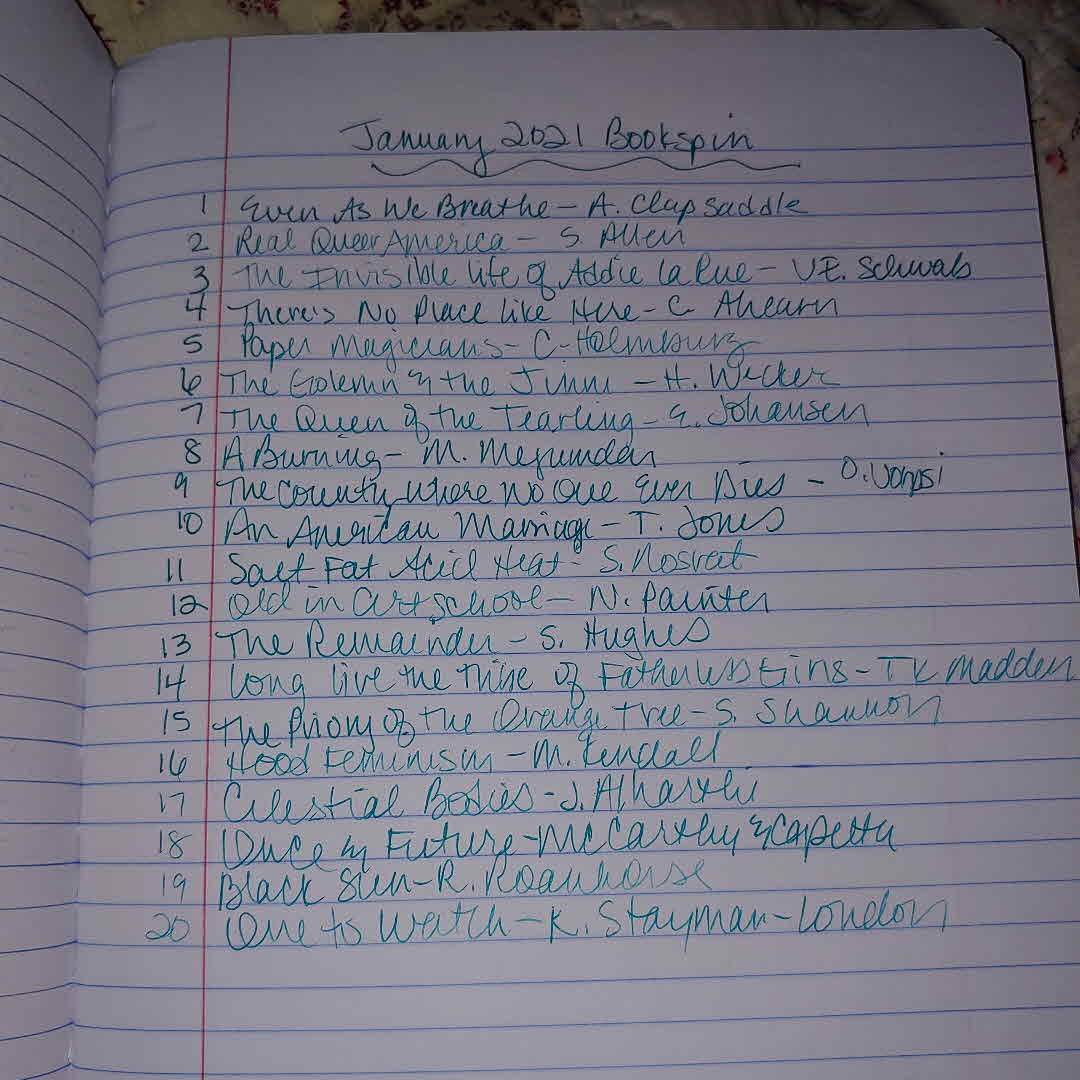 January 2021 Bookspin
1 Even As We Breathe - A. Clapsaddle
2 Real Queer America - S. Allen
3 The Invisible Life of Addie La Rue - V.E. Schwab
4 There's No Place Like Here - C. Ahearn
5 Paper Magicians - C. Holmburg
6 The Golemn & the Jinni - H. Wecker
7 The Queen of the Tearling - E. Johansen
8 A Burning - M. Mejumdar
9 The County Where No One Ever Dies - O. Vorpsi
10 An American Marriage - T. Jones
11 Salt Fat Acid Heat - S. Nosrat
12 Old in Art School - N. Painter
13 The Remainder - S. Hughes
14 Long Live the Tribe of Fatherless Girls - TK Madden
15 The Priory of the Orange Tree - S. Shannon
16 Hood Feminism - M. Kendall
17 Celestial Bodies - J. Alharthi
18 Once & Future - McCarthy & Capetta
19 Black Sun - R. Roanhorse
20 One to Watch - K. Stayman-London